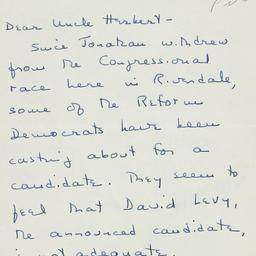 Dear Uncle Herbert -
Since Jonathan withdrew
from the Congressional
race here in Riverdale,
some of the Reform
Democrats have been
casting about for a
candidate. They seem to
feel that David Levy,
the announced candidate,
is not adequate.